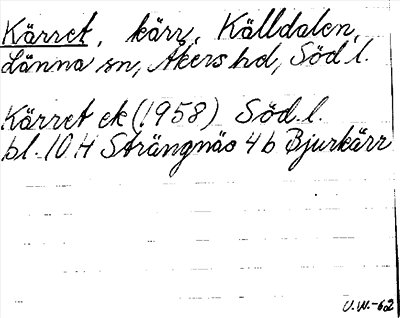 Kärret, kärr, Källdalen,
Länna sn, Åkers hd, Söd.l.
Kärret ek (1958) Söd.l.
bl. 10 H Strängnäs 4 b Bjurkärr
U.W.-62